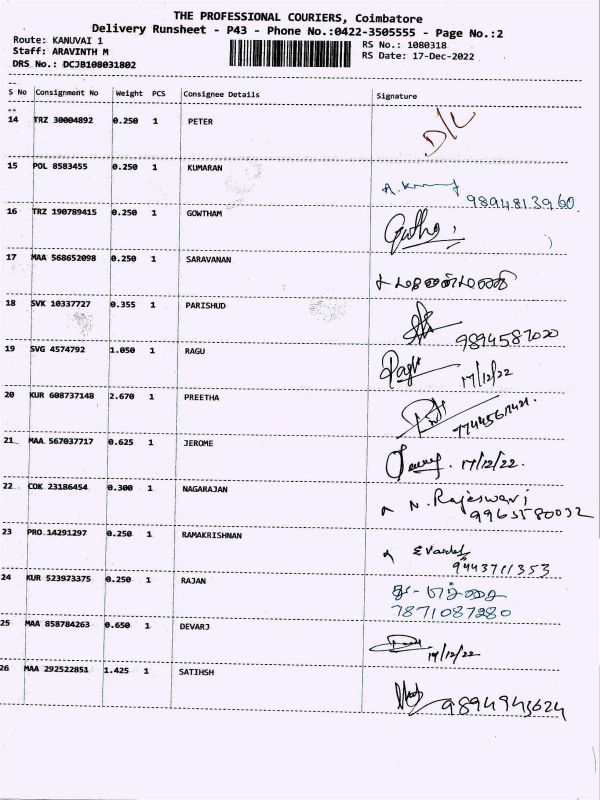 THE PROFESSIONAL COURIERS, Coimbatore
Delivery Runsheet - P43 - Phone No.:0422-3505555 - Page No.:2
Route: KANUVAI 1
Staff: ARAVINTH M
DRS No.: DCJB108031802
RS No.: 1080318
RS Date: 17-Dec-2022
S No Consignment No Weight PCS Consignee Details Signature
14 TRZ 30004892 0.250 1 PETER D/L
15 POL 8583455 0.250 1 KUMARAN
9894813960
16 TRZ 190789415 0.250 1 GOWTHAM
17 MAA 568652098 0.250 1 SARAVANAN
18 SVK 10337727 0.355 1 PARISHUD
9894587020
19 SVG 4574792 1.050 1 RAGU
17/12/22
20 KUR 608737148 2.670 1 PREETHA
21 MAA 567037717 0.625 1 JEROME
17/12/22.
22 COK 23186454 0.300 1 NAGARAJAN N. Rajeswari
23 PRO 14291297 0.250 1 RAMAKRISHNAN
9443711353
24 KUR 523973375 0.250 1 RAJAN
7871087280
25 MAA 858784263 0.650 1 DEVARJ
17/12/22
26 MAA 292522851 1.425 1 SATIHSH
9894943624